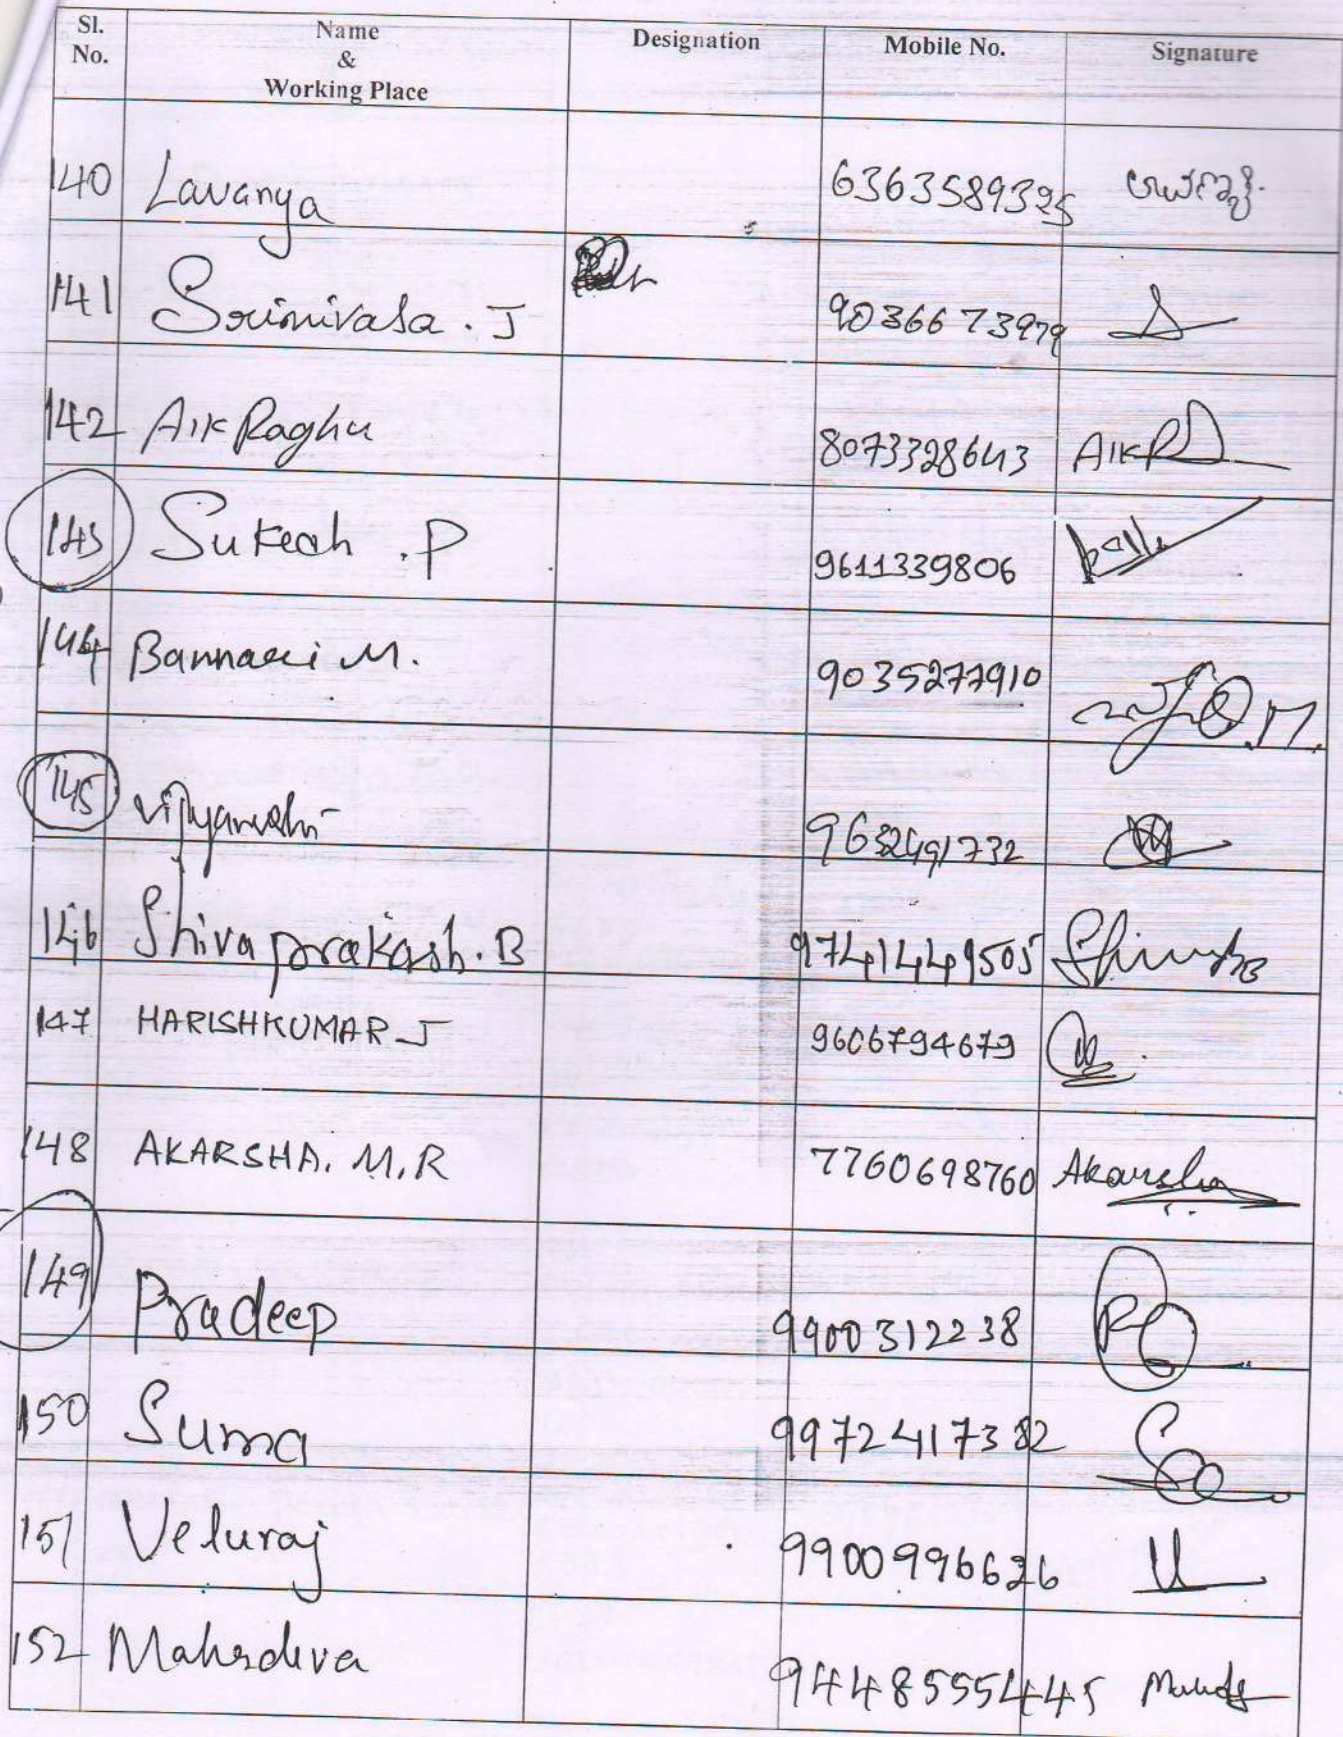 Sl. No. Name & Working Place Designation Mobile No. Signature
140 Lavanya 6363589325 ಲಾವಣ್ಯ
141 Srinivasa . J 9036673979
142 AIK Raghu 8073328643 AIKR
143 Sukesh . P 9611339806
144 Bannari M. 9035277910
145 9632491732
146 Shivaprakash. B 9741449505
147 HARISHKUMAR J 9606794679
148 AKARSHA. M. R 7760698760 Akarsha
149 Pradeep 9900312238
150 Suma 9972417382
151 Veluraj 9900996626
152 Mahadeva 9448555445